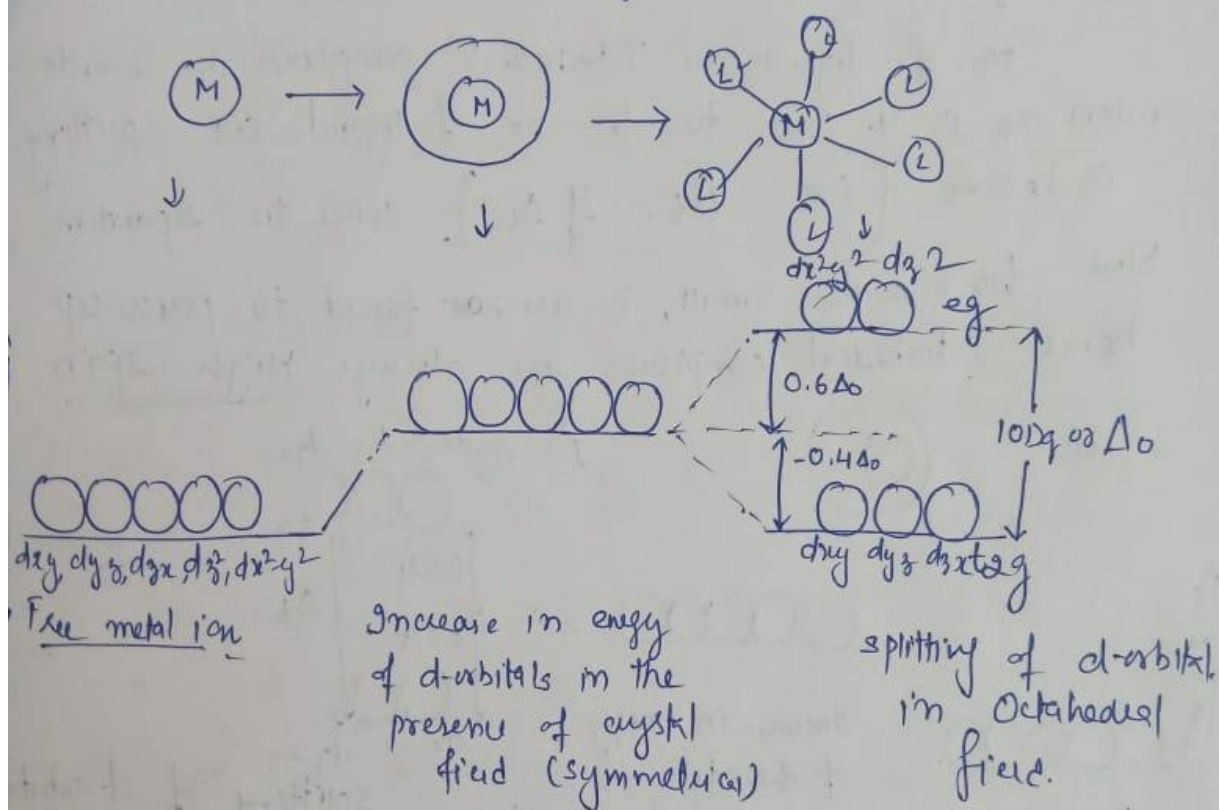 M
M
L
L
L
M
L
L
L
dx²y² dz2
eg
0.6Δo
10Dq or Δo
-0.4Δo
dxy dyz dzx t2g
dxy, dyz, dzx, dz², dx²-y²
Free metal ion
Increase in enegy
of d-orbitals in the
presence of crystal
field (symmetrical)
splitting of d-orbital
in Octahedral
field.